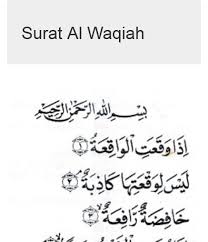 Surat Al Waqiah
بِسْمِ اللهِ الرَّحْمٰنِ الرَّحِيْمِ
اِذَا وَقَعَتِ الْوَاقِعَةُ ۝١
لَيْسَ لِوَقْعَتِهَا كَاذِبَةٌ ۝٢
خَافِضَةٌ رَّافِعَةٌ ۝٣